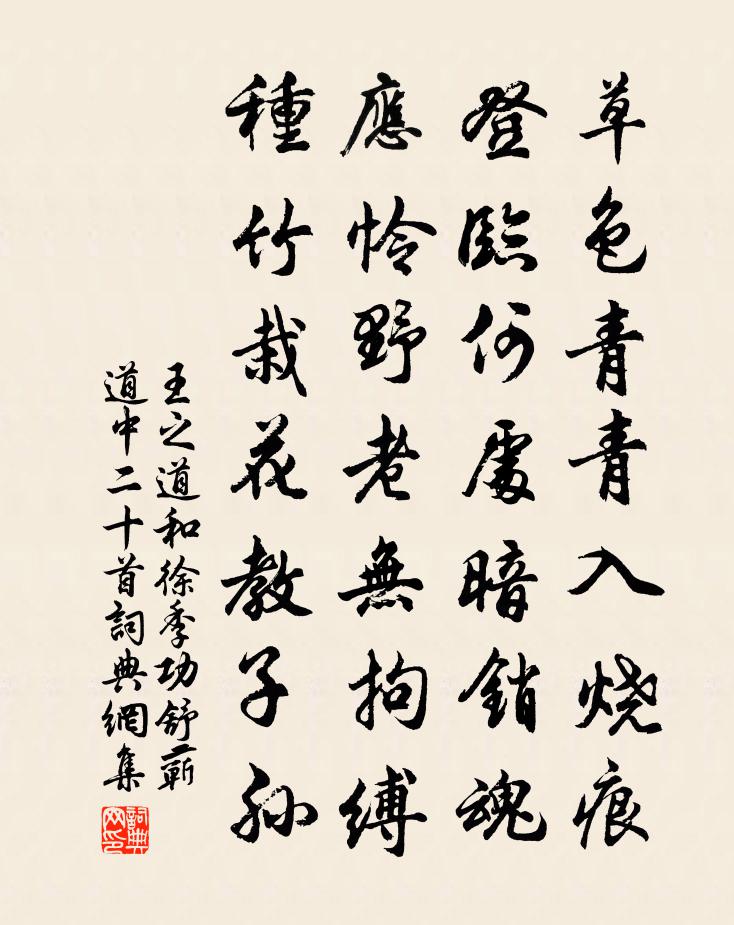 草色青青入烧痕
登臨何處暗銷魂
應怜野老無拘縛
種竹栽花教子孫
王之道和徐季功舒蘄
道中二十首詞典網集
詞典網印